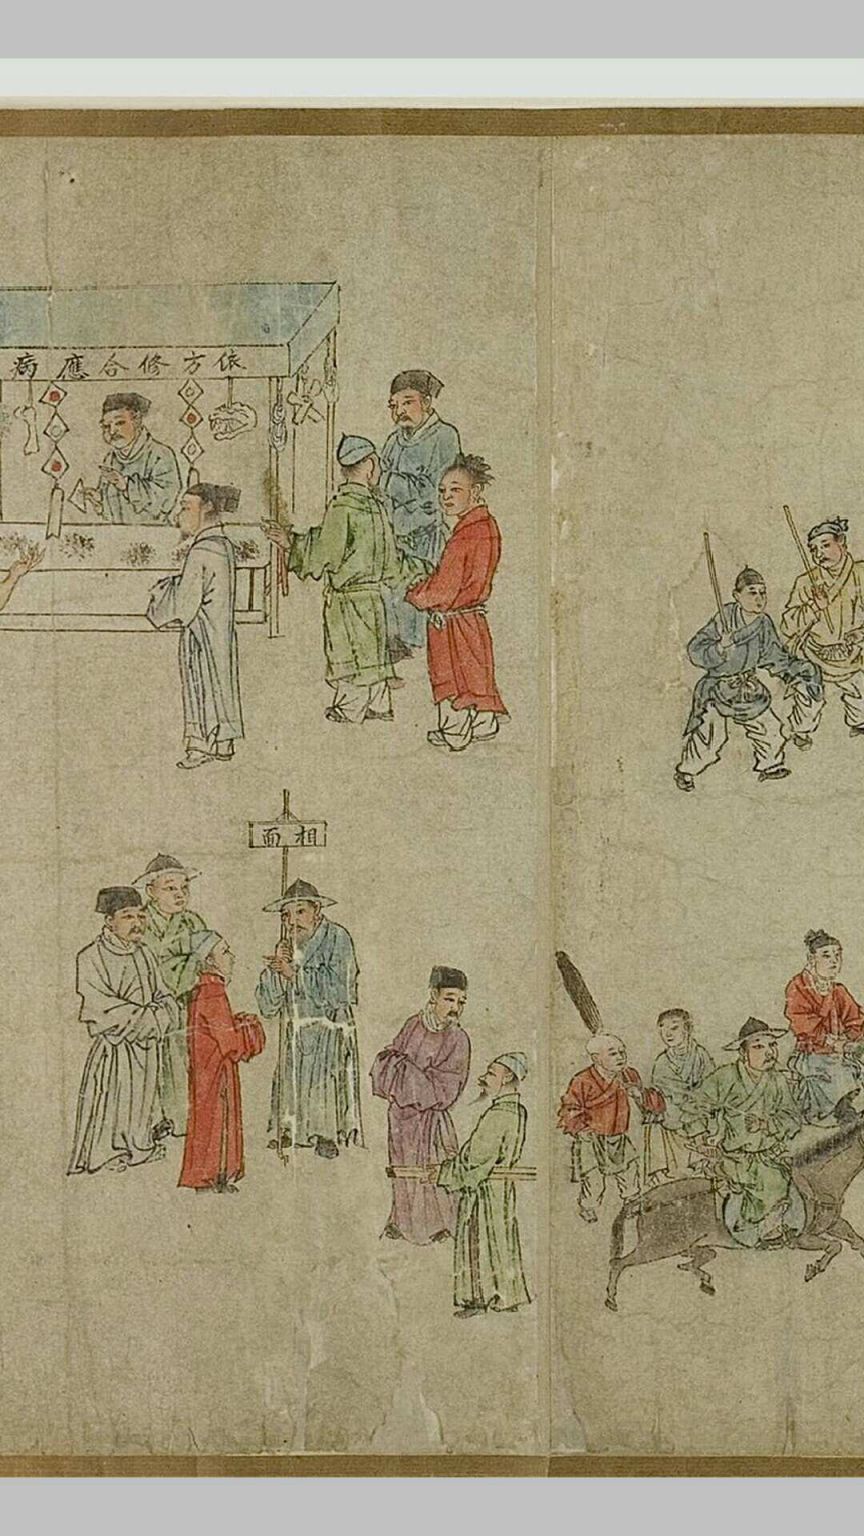 依方修合應病
相面